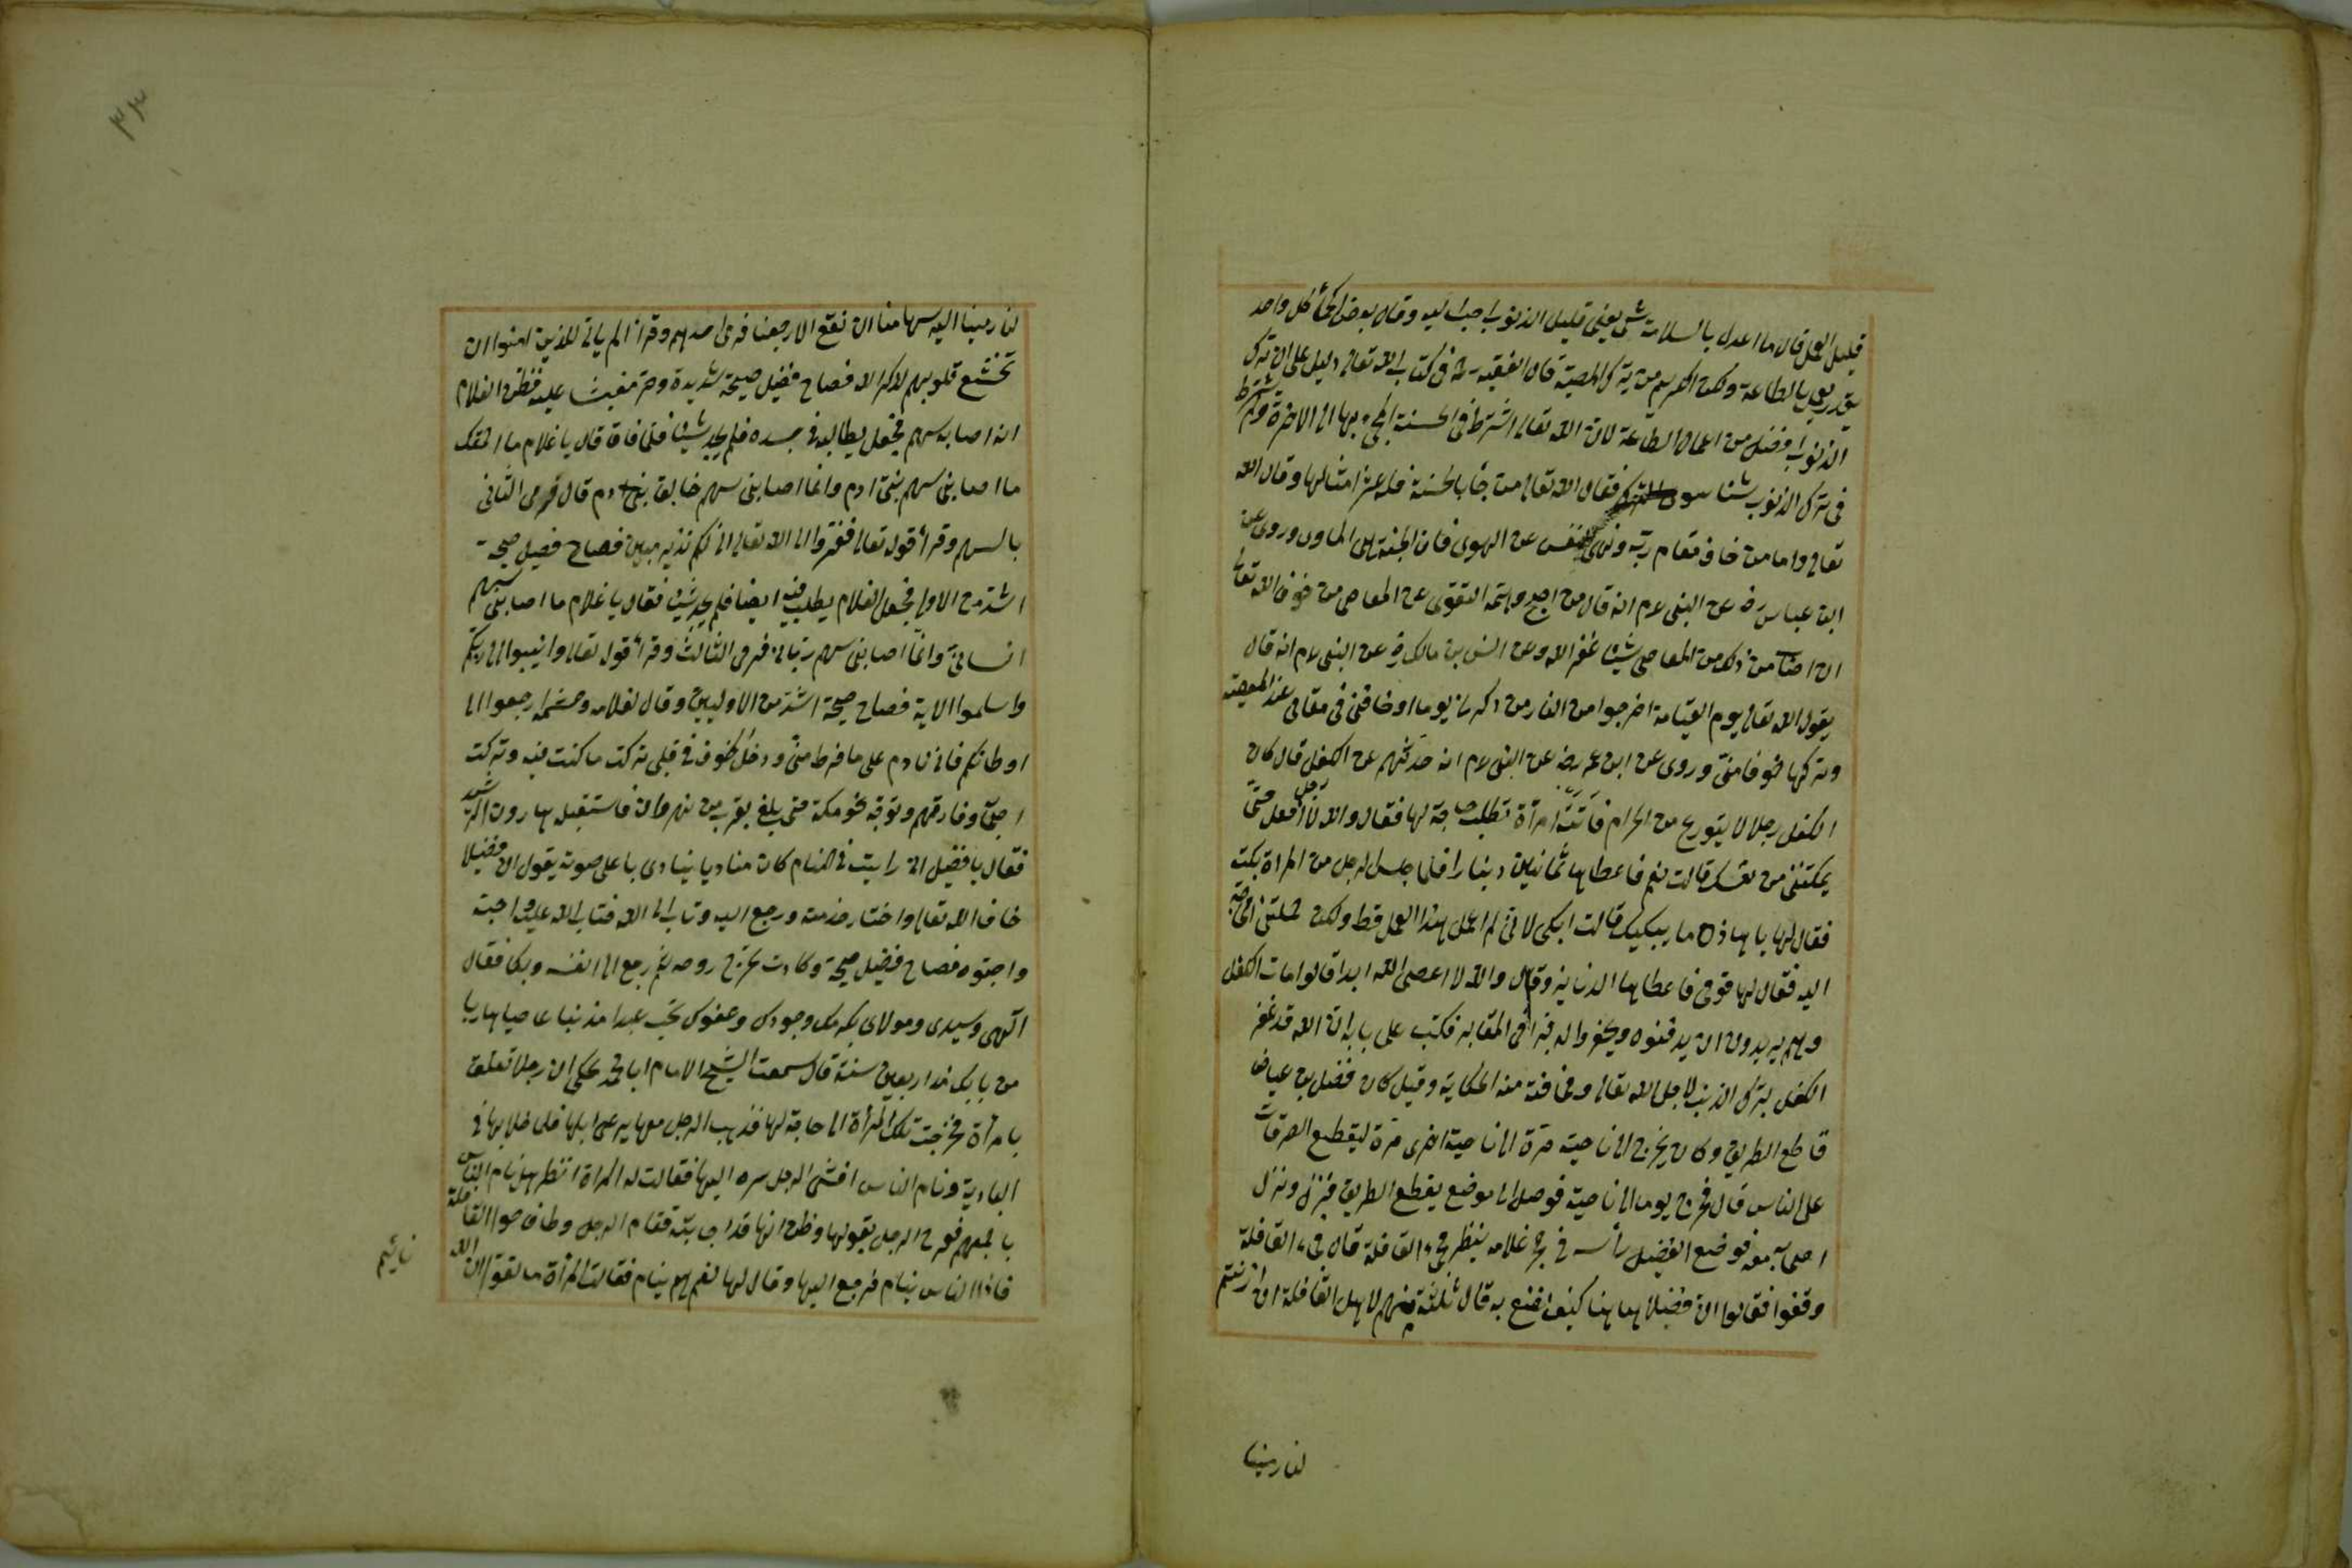 قليل العمل قال ما اعدل بالسلامة شئ يعني قليل الذنوب احب اليه وقال بعض الحكماء كل واحد
يقدر يعمل بالطاعة ولكن الكريم من يترك المعصية قال الفقيه رحمه في كتاب الله تعالى دليل على ان ترك
الذنوب افضل من اعمال الطاعة لان الله تعالى اشترط في الحسنة المجئ بها الى الاخرة ولم يشترط
في ترك الذنوب شيئا سوى الترك فقال الله تعالى من جاء بالحسنة فله عشر امثالها وقال الله
تعالى واما من خاف مقام ربه ونهى النفس عن الهوى فان الجنة هي الماوى وروى عن
ابن عباس رض عن النبي عم انه قال من اجهد همته التقوى عن المعاصي من خوف الله تعالى
ان اصاب من ذلك من المعاصي شيئا غفر الله وعن انس بن مالك رض عن النبي عم انه قال
يقول الله تعالى يوم القيامة اخرجوا من النار من ذكرني يوما او خافني في مقامي عند المعصية
وتركها خوفا مني وروى عن ابن عمر رض عن النبي عم انه حدثهم عن الكفل قال كان
الكفل رجلا لا يتورع من الحرام فاتت امرأة تطلب حاجة لها فقال والله لا افعل حتى
تمكنني من نفسك قالت نعم فاعطاها ثمانين دينارا فلما جلس الرجل من المراة بكت
فقال لها يا هذه ما يبكيك قالت ابكى لاني لم اعمل بهذا العمل قط ولكن حملتني الحاجة
اليه فقال لها قومي فاعطاها الدنانير وقال والله لا اعصى الله ابدا قالوا مات الكفل
وهم يريدون ان يدفنوه ويحفروا له قبرا في المقابر فكتب على بابه ان الله قد غفر
الكفل بترك الذنب لاجل الله تعالى ومخافته منه الحكاية وقيل كان فضيل بن عياض
قاطع الطريق وكان يخرج الى ناحية مرة الى ناحية اخرى مرة ليقطع الطرقات
على الناس قال فخرج يوما الى ناحية فوصل الى موضع يقطع الطريق فنزل ونزل
اصحابه معه فوضع الفضيل رأسه في حجر غلامه ينظر مجئ القافلة قال فجاء القافلة
وقفوا فقالوا ان فضيلا ههنا كيف نصنع به قال ثلثة منهم لاهل القافلة ان اذنتم
لنا رمينا
لنا رمينا اليه سهامنا ان نقع الا رجعنا فرمى احدهم وقرأ الم يأن للذين امنوا ان
تخشع قلوبهم لذكر الله فصاح فضيل صيحة شديدة وخر مغشيا عليه فظن الغلام
انه اصابه سهم فجعل يطالبه في جسده فلم يجد شيئا فلما افاق قال يا غلام ما
ما اصابني سهم بني ادم وانما اصابني سهم خالق بني ادم قال فرمى الثاني
بالسهم وقرأ قوله تعالى ففروا الى الله تعالى اني لكم نذير مبين فصاح فضيل صيحة
اشد من الاولى فجعل الغلام يطلب فيه ايضا فلم يجد شيئا فقال يا غلام ما اصابني سهم
انساني وانما اصابني سهم رباني فرمى الثالث وقرأ قوله تعالى وانيبوا الى ربكم
واسلموا الاية فصاح صيحة اشد من الاوليين وقال لغلامه وحشمه ارجعوا الى
اوطانكم فاني نادم على ما فرط مني ودخل الخوف في قلبي تركت ما كنت فيه وتركت
احبتي وفارقهم وتوجه نحو مكة حتى بلغ بقرب من نهروان فاستقبله هارون الرشيد
فقال يا فضيل اني رايت في المنام كان مناديا ينادي باعلى صوته يقول ان فضيلا
خاف الله تعالى واختار خدمته ورجع اليه وتاب الى الله فتاب الله عليه واجبه
واحبوه فصاح فضيل صيحة وكادت تخرج روحه ثم رجع الى نفسه وبكا فقال
الهي وسيدي ومولاي بكرمك وجودك وعفوك تحب عبدا مذنبا عاصيا هاربا
من بابك منذ اربعين سنة قال سمعت الشيخ الامام ابا محمد يحكى ان رجلا تعلق
بامرأة فخرجت تلك المرأة الى حاجة لها فذهب الرجل معها يرعى ابلها فلما خلا بها في
البادية ونام الناس افشى الرجل سره اليها فقالت له المراة انظر هل نام الناس
باجمعهم ففرح الرجل بقولها وظن انها قد اجابته فقام الرجل وطاف حول القافلة
فاذا الناس ينام فرجع اليها وقال لها نعم هم ينام فقالت المرأة ما تقول ان الله
نائم
٣٣